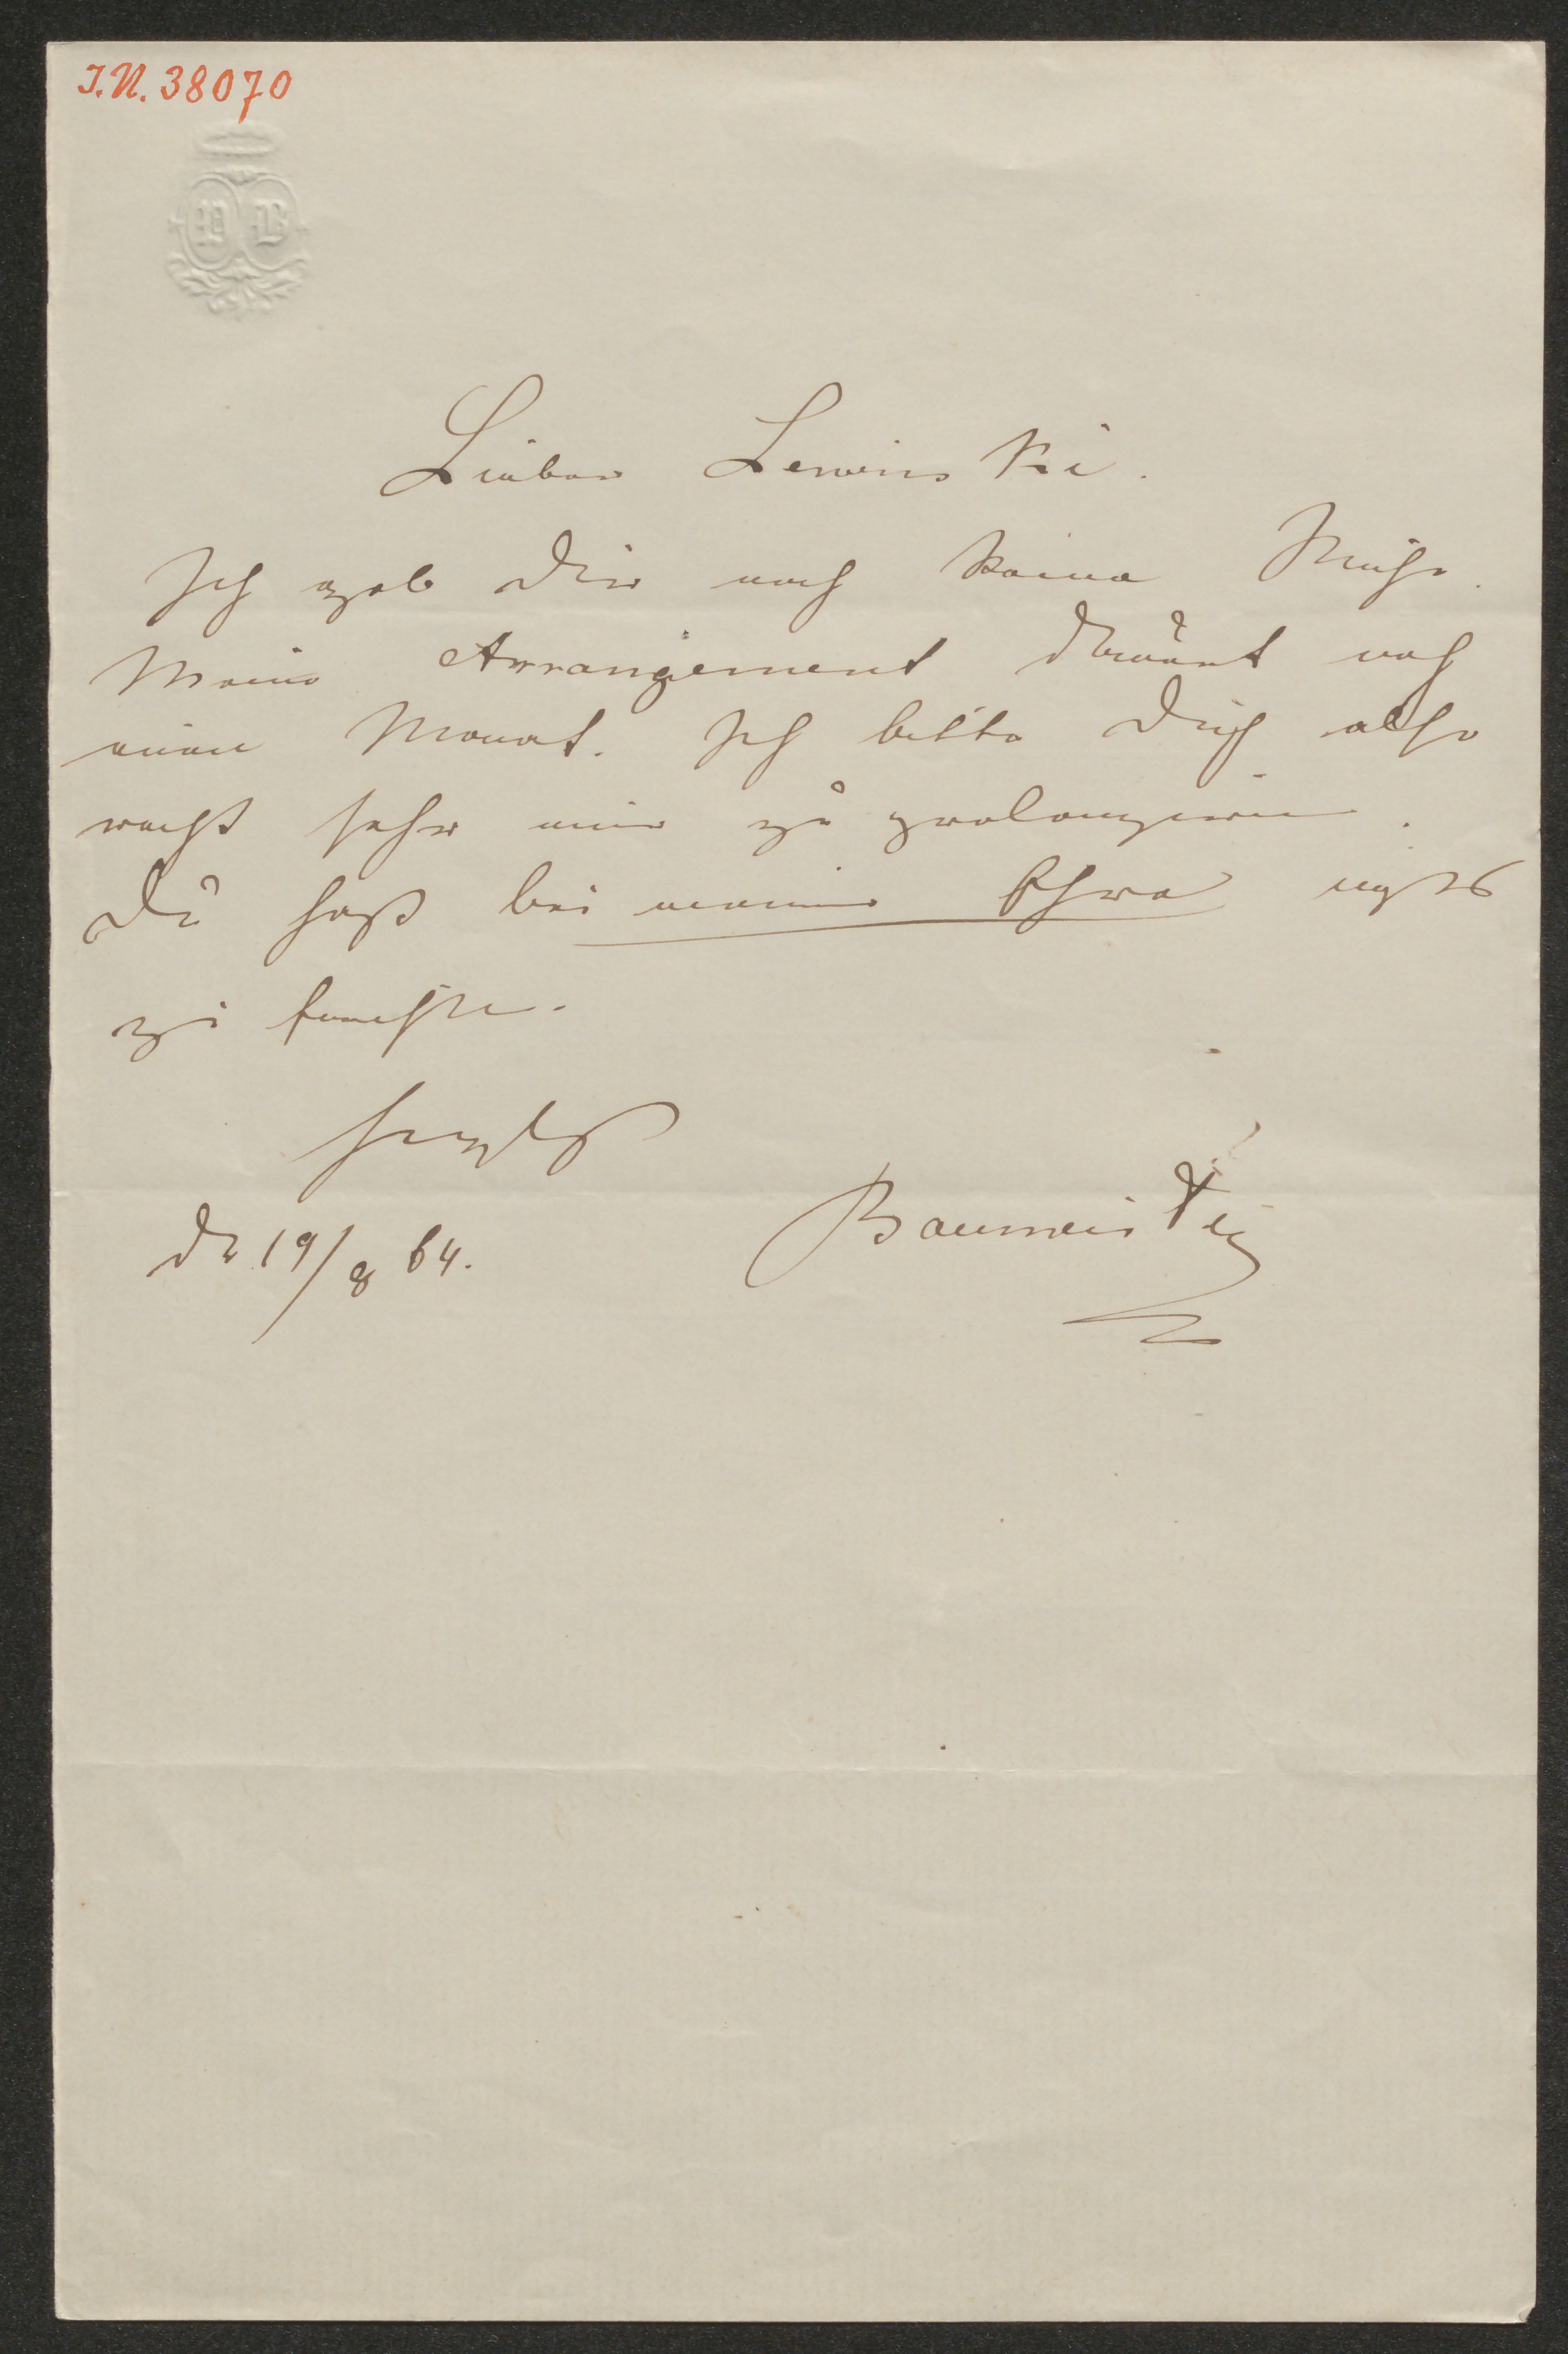 I.N. 38070
Lieber Lewinski.
Ich geb Dir noch keine Ruhe.
Mein Arrangement dauert noch
einen Monat. Ich bitte Dich also
recht sehr mir zu prolongieren.
Du hast bei meiner Ehre nichts
zu fürchten.
herzlichst
Baumeister
den 19/8 64.